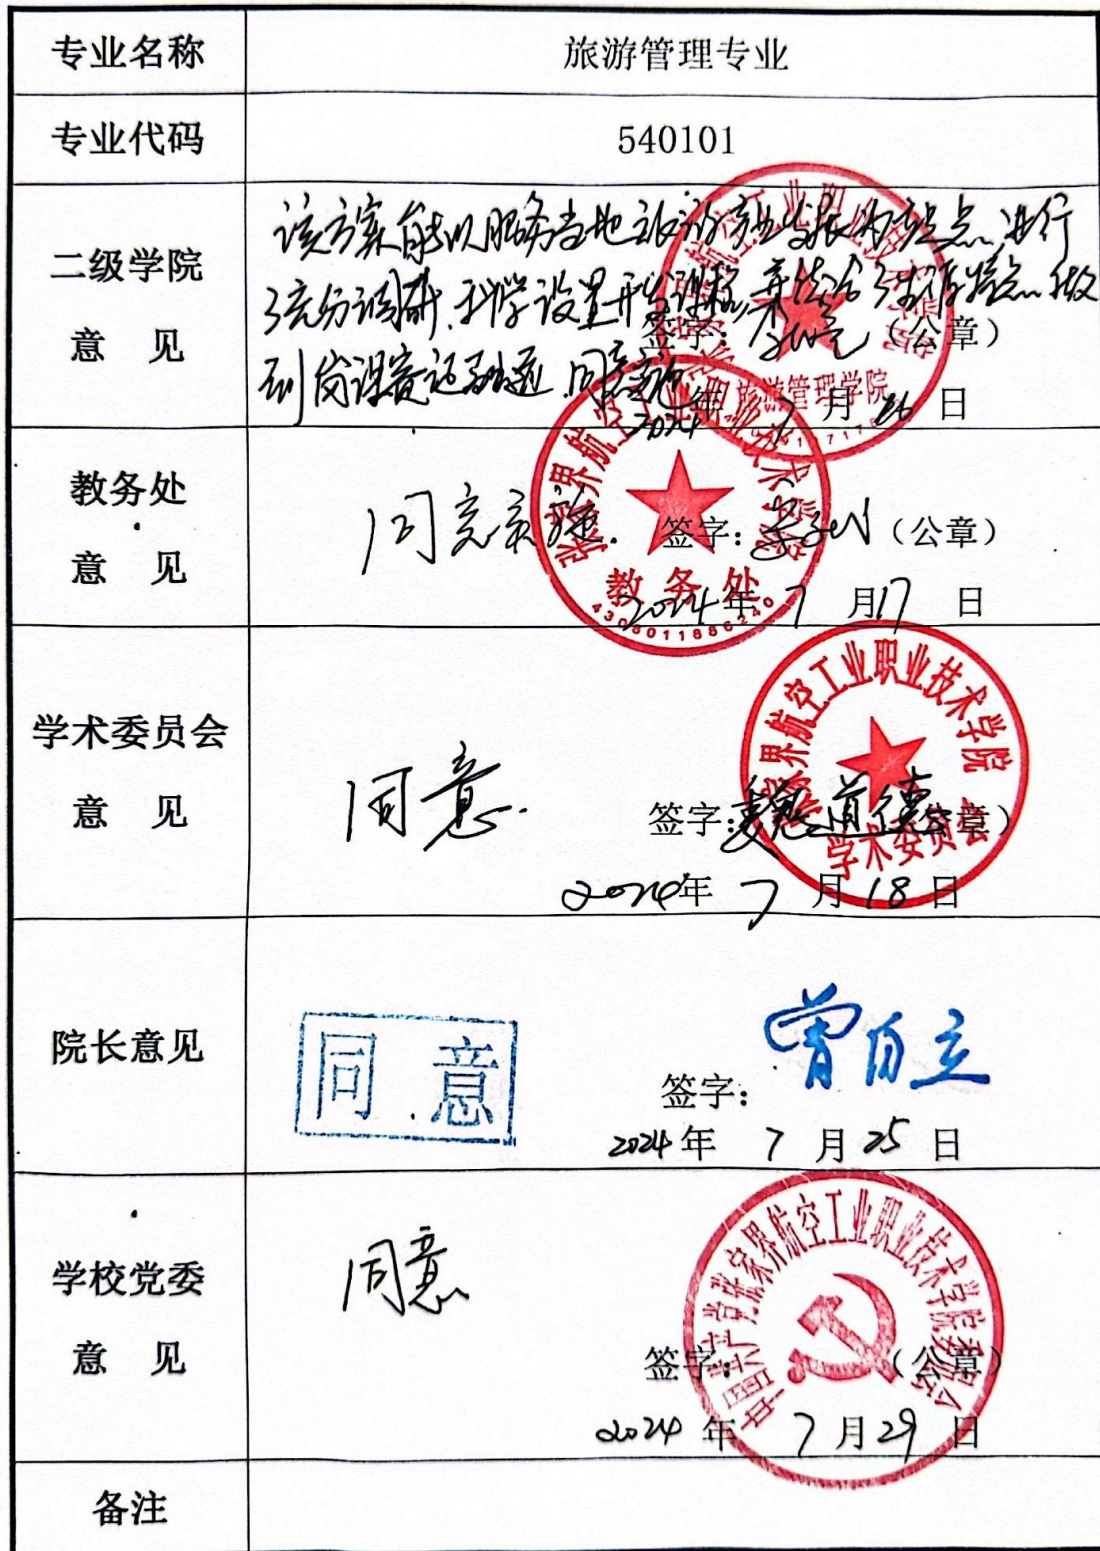 专业名称 旅游管理专业
专业代码 540101
二级学院
意 见
该方案能以服务当地旅游产业发展为起点,进行
了充分调研,科学设置开发课程,并结合 特点,做
到岗课赛证融通,同意实施
签字: (公章)
2024年 7 月 16 日
张家界航空工业职业技术学院
旅游管理学院
教务处
意 见
同意实施. 签字: (公章)
2024年 7 月 17 日
张家界航空工业职业技术学院
教务处
学术委员会
意 见
同意.
签字: 魏道德 (公章)
2024年 7 月 18 日
张家界航空工业职业技术学院
学术委员会
院长意见
同 意
签字: 曾自立
2024年 7 月 25 日
学校党委
意 见
同意
签字: (公章)
2024 年 7 月 29 日
中国共产党张家界航空工业职业技术学院委员会
备注